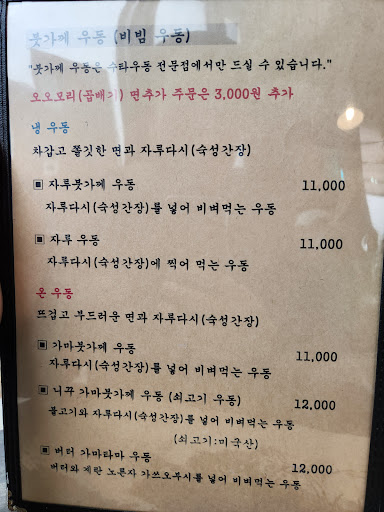 붓가께 우동 (비빔 우동)
"붓가께 우동은 수타우동 전문점에서만 드실 수 있습니다."
오오모리(곱배기) 면추가 주문은 3,000원 추가
냉 우동
차갑고 쫄깃한 면과 자루다시(숙성간장)
▣ 자루붓가께 우동 11,000
자루다시(숙성간장)를 넣어 비벼먹는 우동
▣ 자루 우동 11,000
자루다시(숙성간장)에 찍어 먹는 우동
온 우동
뜨겁고 부드러운 면과 자루다시(숙성간장)
▣ 가마붓가께 우동 11,000
자루다시(숙성간장)를 넣어 비벼먹는 우동
▣ 니꾸 가마붓가께 우동 (쇠고기 우동) 12,000
불고기와 자루다시(숙성간장)를 넣어 비벼먹는 우동
(쇠고기:미국산)
▣ 버터 가마타마 우동 12,000
버터와 계란 노른자 가쓰오부시를 넣어 비벼먹는 우동